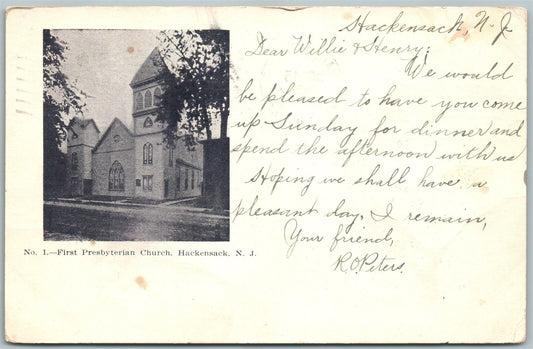 Hackensack, N. J.
Dear Willie & Henry:
We would
be pleased to have you come
up Sunday for dinner and
spend the afternoon with us
Hoping we shall have a
pleasant day, I remain,
Your friend,
R.O. Peters.
No. 1.—First Presbyterian Church, Hackensack, N. J.